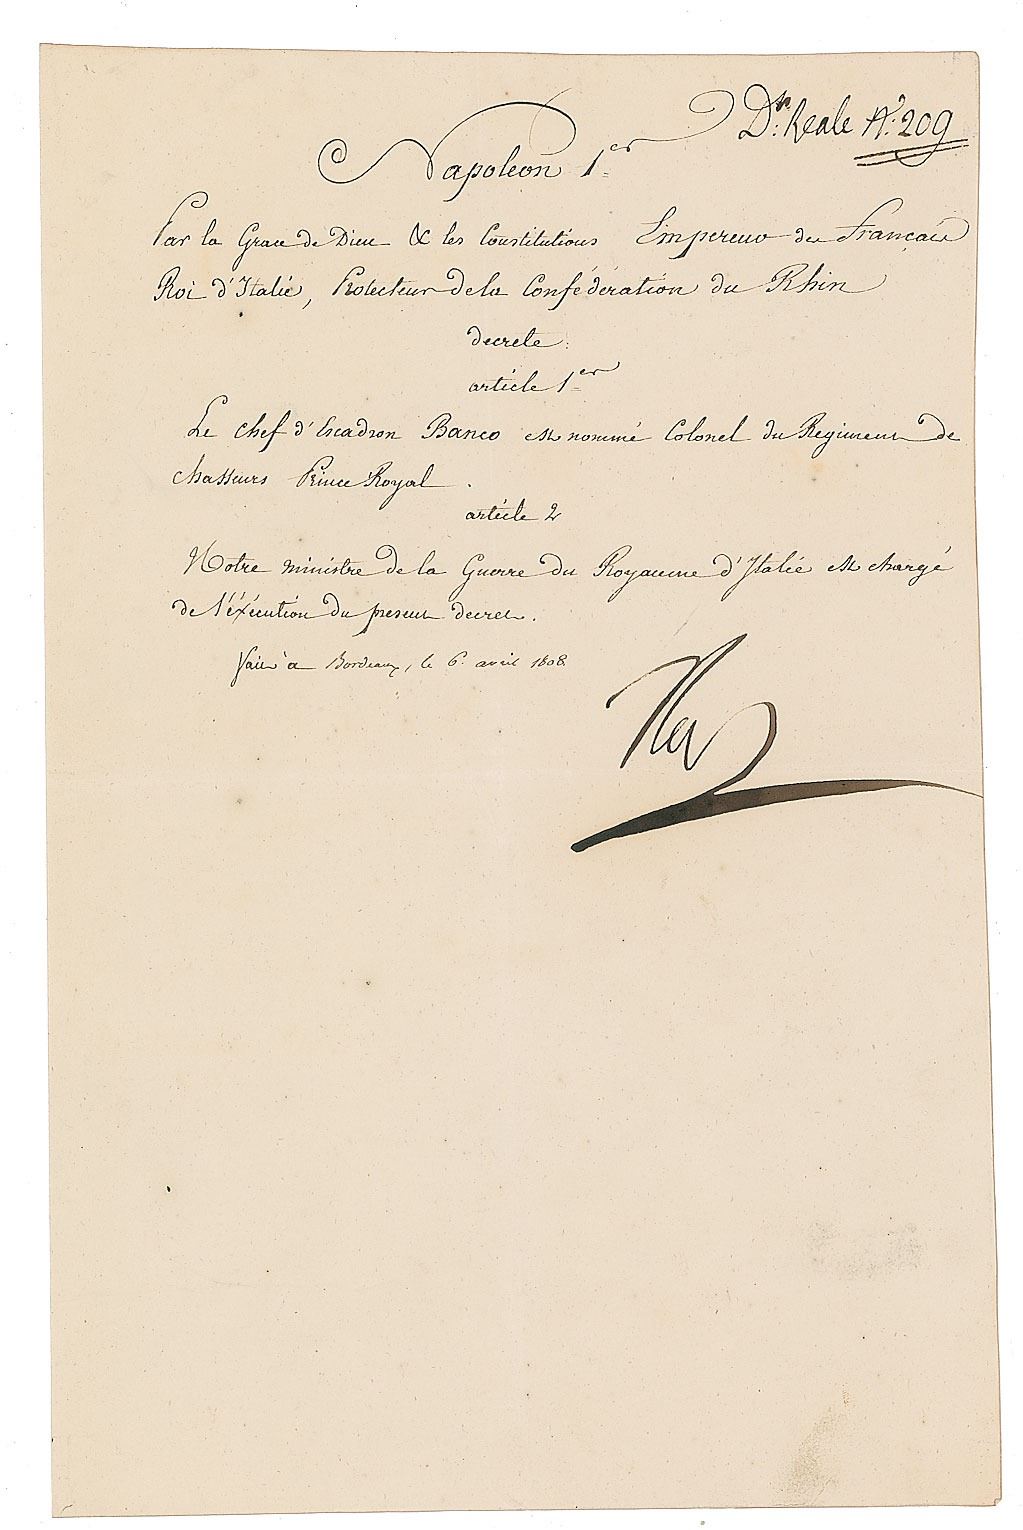 D.to Reale N.º 209
Napoleon 1er
Par la Grace de Dieu & les Constitutions Empereur des Français
Roi d'Italie, Protecteur de la Confédération du Rhin
decrete:
article 1er
Le chef d'Escadron Banco est nommé Colonel du Regiment de
chasseurs Prince Royal.
article 2
Notre ministre de la Guerre du Royaume d'Italie est chargé
de l'éxécution du present decret.
Fait à Bordeaux, le 6. avril 1808